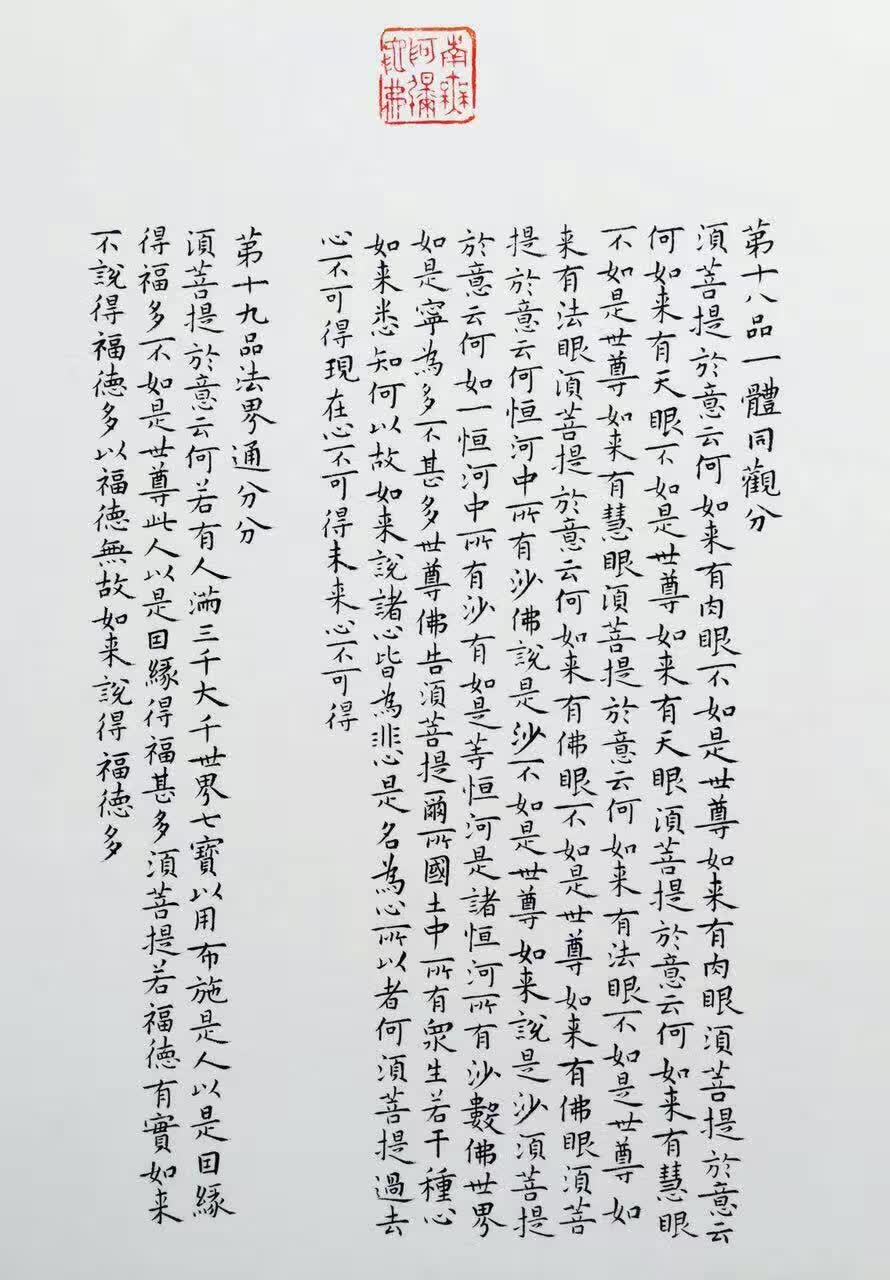 南無阿彌陀佛
第十八品一體同觀分
須菩提於意云何如来有肉眼不如是世尊如来有肉眼須菩提於意云
何如来有天眼不如是世尊如来有天眼須菩提於意云何如来有慧眼
不如是世尊如来有慧眼須菩提於意云何如来有法眼不如是世尊如
来有法眼須菩提於意云何如来有佛眼不如是世尊如来有佛眼須菩
提於意云何恒河中所有沙佛說是沙不如是世尊如来說是沙須菩提
於意云何如一恒河中所有沙有如是等恒河是諸恒河所有沙數佛世界
如是寧為多不甚多世尊佛告須菩提爾所國土中所有衆生若干種心
如来悉知何以故如来說諸心皆為非心是名為心所以者何須菩提過去
心不可得現在心不可得未来心不可得
第十九品法界通分分
須菩提於意云何若有人滿三千大千世界七寶以用布施是人以是因緣
得福多不如是世尊此人以是因緣得福甚多須菩提若福德有實如来
不說得福德多以福德無故如来說得福德多